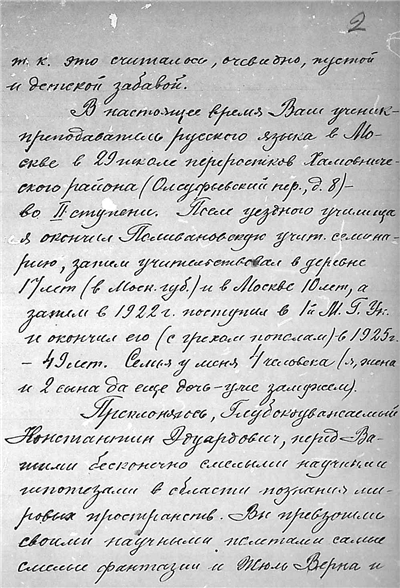 2
т. к. это считалось, очевидно, пустой
и детской забавой.
В настоящее время Ваш ученик-
преподаватель русского языка в Мо-
скве в 29 школе переростков Хамовниче-
ского района (Олсуфьевский пер., д. 8)-
во II ступени. После уездного училища
я окончил Поливановскую учит. семина-
рию, затем учительствовал в деревне
17 лет (в Моск. губ.) и в Москве 10 лет, а
затем в 1922 г. поступил в 1й М. Г. Ун.
и окончил его (с грехом пополам) в 1925 г.
- 49 лет. Семья у меня 4 человека (я, жена
и 2 сына да еще дочь-уже замужем).
Преклоняюсь, Глубокоуважаемый
Константин Эдуардович, перед Ва-
шими бесконечно смелыми научными
гипотезами в области познания ми-
ровых пространств. Вы превзошли
своими научными полетами самые
смелые фантазии и Жюль Верна и